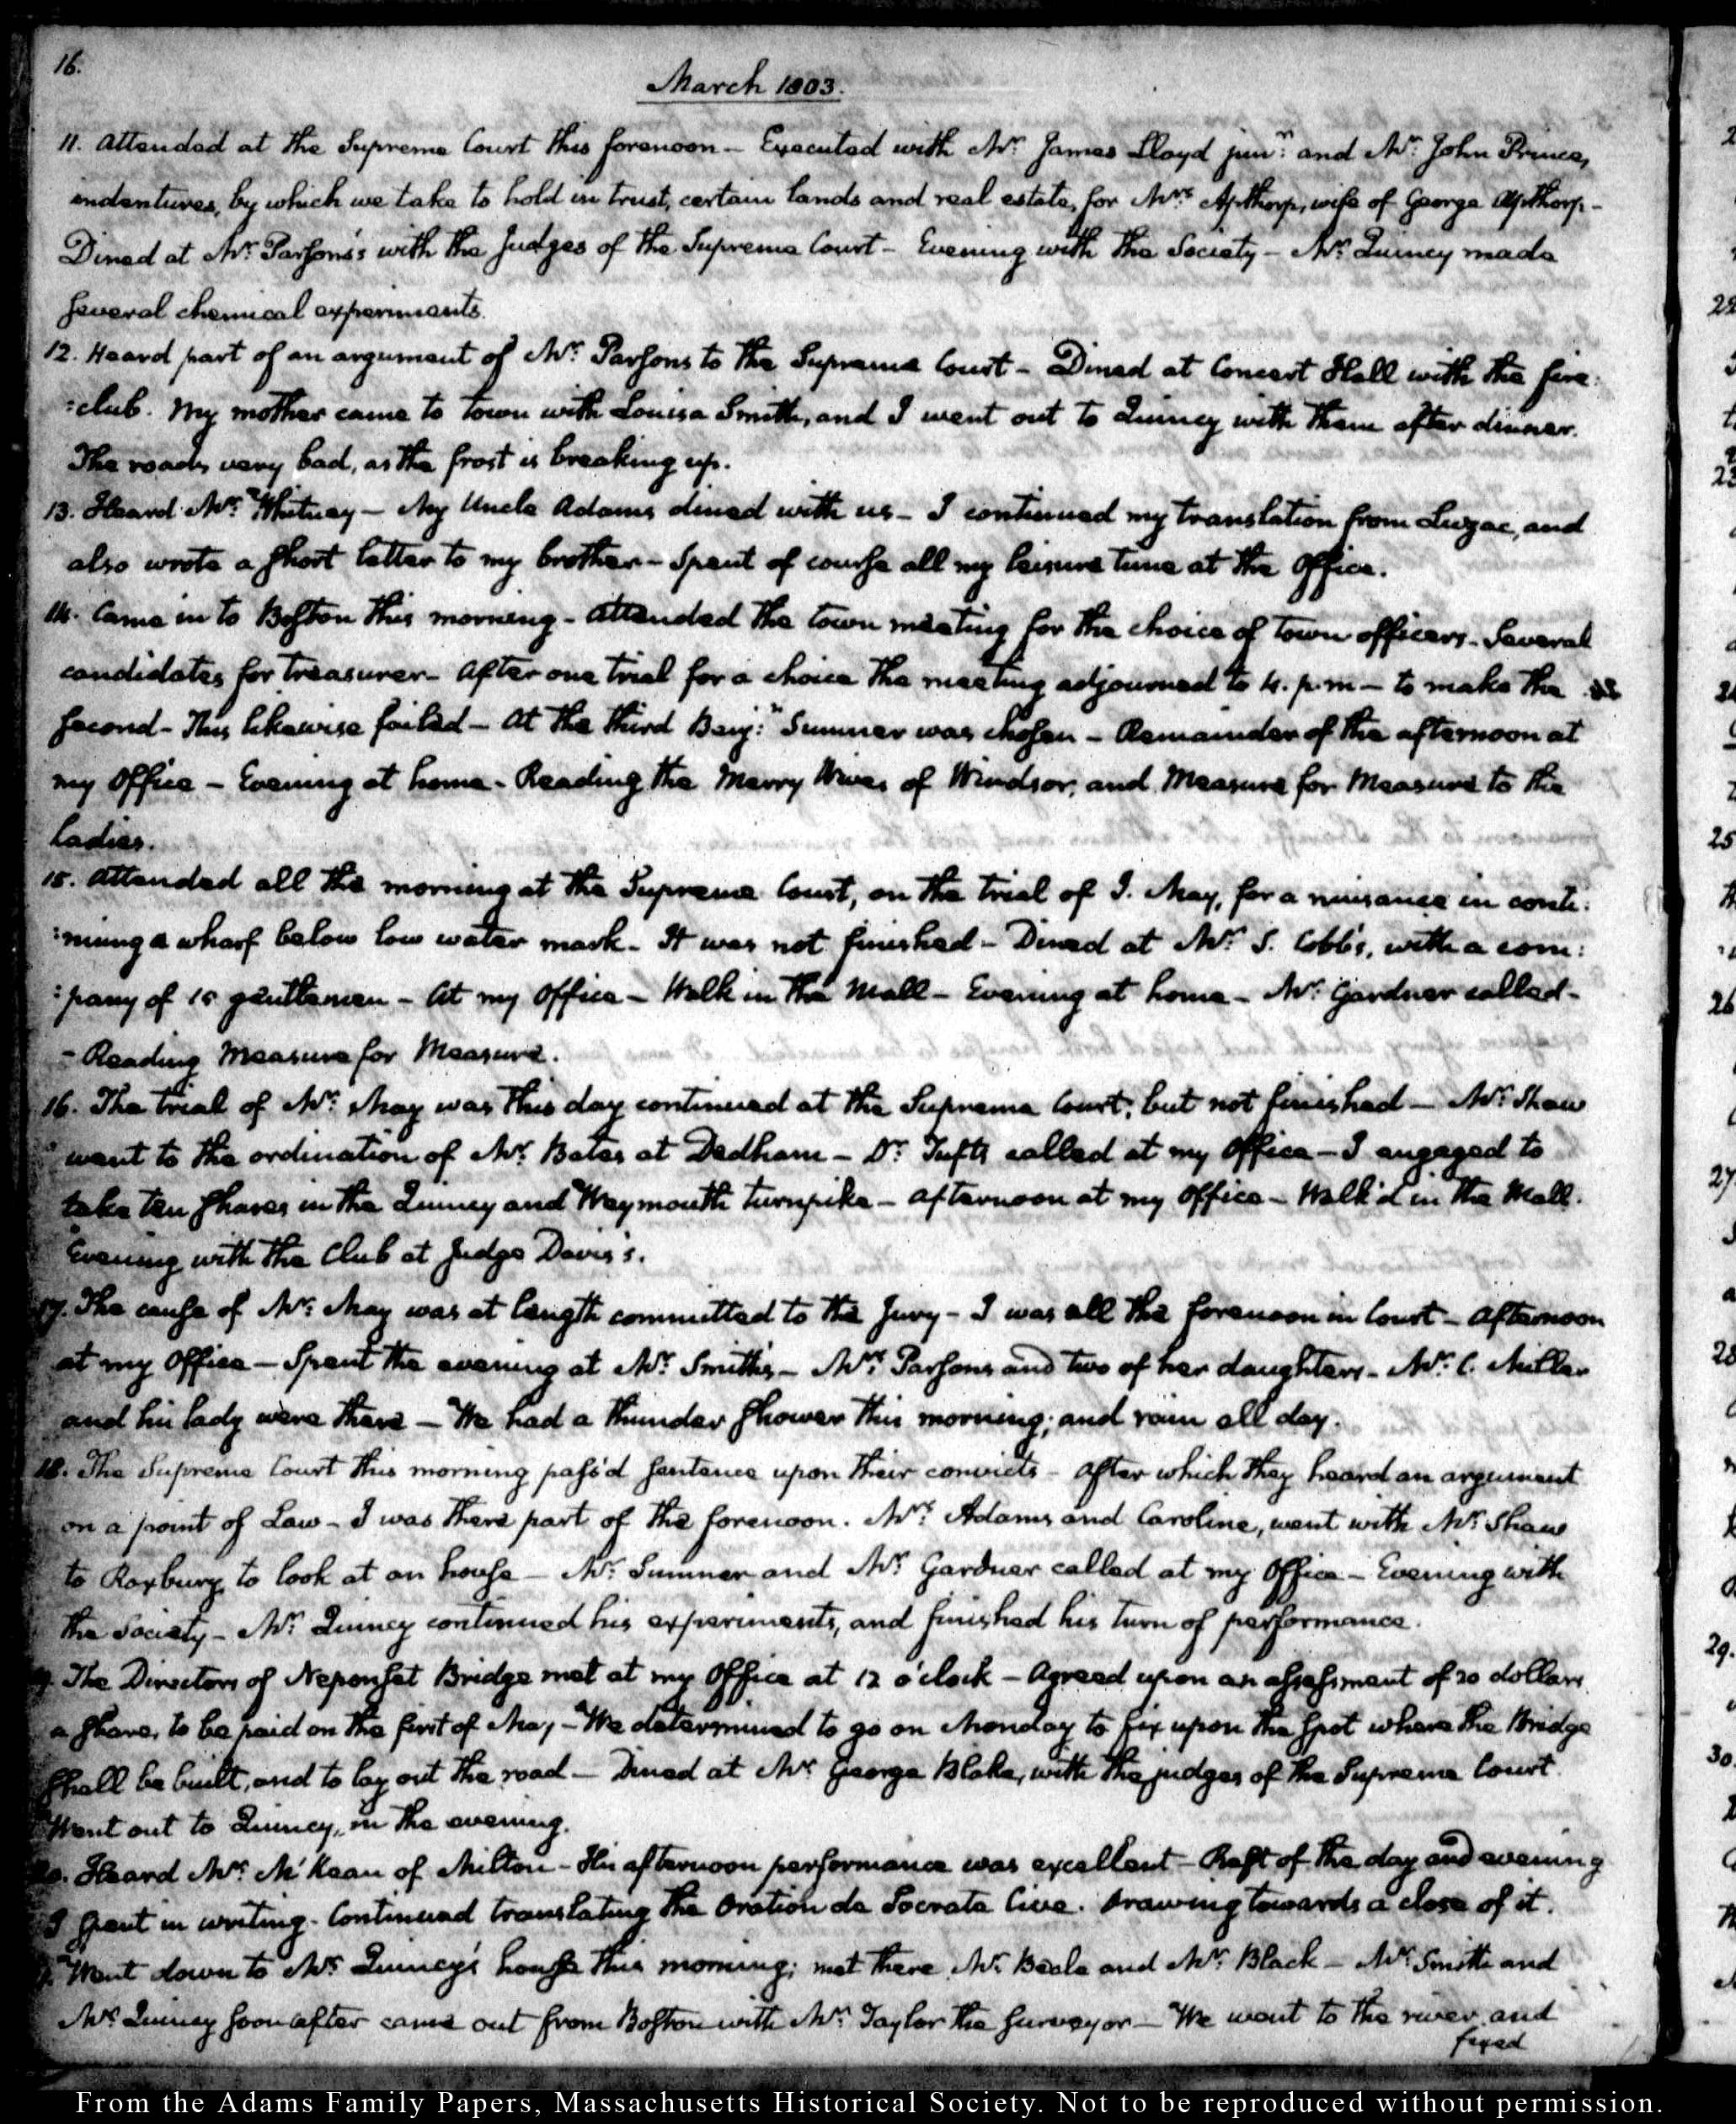 16.
March 1803.
11. Attended at the Supreme Court this forenoon – Executed with Mr. James Lloyd junr. and Mr. John Prince,
indentures, by which we take to hold in trust, certain lands and real estate, for Mrs. Apthorp, wife of George Apthorp –
Dined at Mr. Parsons's with the Judges of the Supreme Court – Evening with the Society – Mr. Quincy made
several chemical experiments.
12. Heard part of an argument of Mr. Parsons to the Supreme Court – Dined at Concert Hall with the fire:
:club. My mother came to town with Louisa Smith, and I went out to Quincy with them after dinner.
The roads very bad, as the frost is breaking up.
13. Heard Mr. Whitney – My Uncle Adams dined with us – I continued my translation from Luzac, and
also wrote a short letter to my brother – Spent of course all my leisure time at the Office.
14. Came in to Boston this morning – Attended the town meeting for the choice of town officers – Several
candidates for treasurer – After one trial for a choice the meeting adjourned to 4. p.m – to make the
second – This likewise failed – At the third Benj:n Sumner was chosen – Remainder of the afternoon at
my Office – Evening at home – Reading the Merry Wives of Windsor, and Measure for Measure to the
ladies.
15. Attended all the morning at the Supreme Court, on the trial of J. May, for a nuisance in conti:
:nuing a wharf below low water mark – It was not finished – Dined at Mr. S. Cobb's, with a com:
:pany of 15 gentlemen – At my Office – Walk in the Mall – Evening at home – Mr. Gardner called –
– Reading Measure for Measure.
16. The trial of Mr. May was this day continued at the Supreme Court, but not finished – Mr. Shaw
went to the ordination of Mr. Bates at Dedham – Dr. Tufts called at my Office – I engaged to
take ten shares in the Quincy and Weymouth turnpike – Afternoon at my Office – Walk'd in the Mall.
Evening with the Club at Judge Davis's.
17. The cause of Mr. May was at length committed to the Jury – I was all the forenoon in Court – Afternoon
at my Office – Spent the evening at Mr. Smith's – Mrs. Parsons and two of her daughters – Mr. C. Miller
and his lady were there – We had a thunder shower this morning; and rain all day.
18. The Supreme Court this morning pass'd sentence upon their convicts – After which they heard an argument
on a point of Law – I was there part of the forenoon. Mrs. Adams and Caroline, went with Mr. Shaw
to Roxbury, to look at an house – Mr. Sumner and Mr. Gardner called at my Office – Evening with
the Society – Mr. Quincy continued his experiments, and finished his turn of performance.
19. The Directors of Neponset Bridge met at my Office at 12 o'clock – Agreed upon an assessment of 20 dollars
a share, to be paid on the first of May – We determined to go on Monday to fix upon the spot where the Bridge
shall be built, and to lay out the road – Dined at Mr. George Blake, with the judges of the Supreme Court.
Went out to Quincy, in the evening.
20. Heard Mr. McKean of Milton – His afternoon performance was excellent – Rest of the day and evening
I spent in writing – Continued translating the Oration de Socrate Cive. Drawing towards a close of it.
Went down to Mr. Quincy's house this morning; met there Mr. Beale and Mr. Black – Mr. Smith and
Mr. Quincy soon after came out from Boston with Mr. Taylor the surveyor – We went to the river, and
fixed
From the Adams Family Papers, Massachusetts Historical Society. Not to be reproduced without permission.